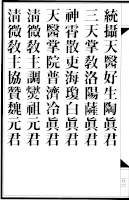 統攝天醫好生陶眞君
三天掌敎洛陽薩眞君
神霄散吏海瓊白眞君
天醫掌院普濟冷眞君
清微敎主調燮祖元君
清微敎主協贊魏元君